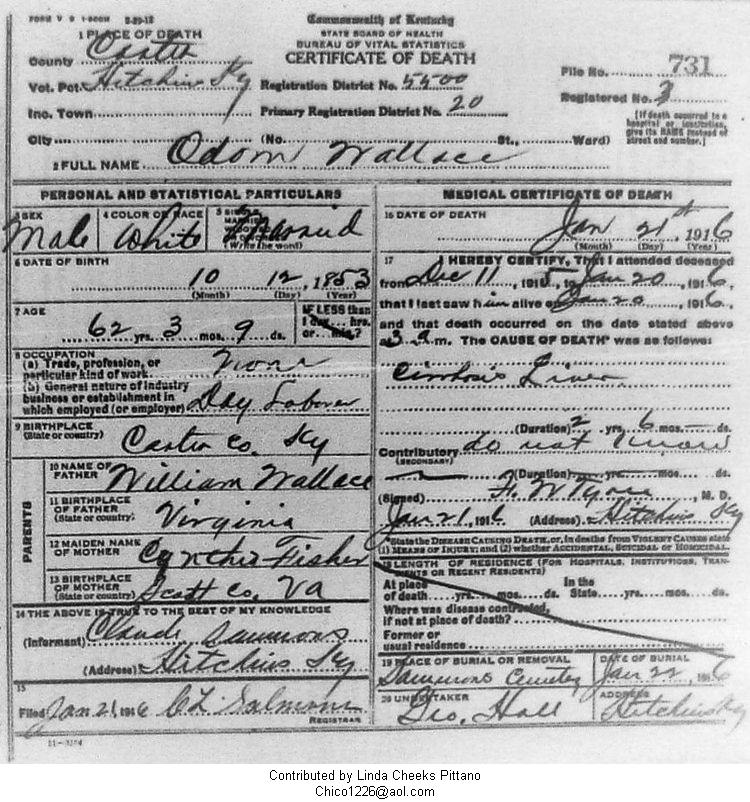 FORM V S 1-500M 3-29-12
Commonwealth of Kentucky
STATE BOARD OF HEALTH
BUREAU OF VITAL STATISTICS
CERTIFICATE OF DEATH
1 PLACE OF DEATH
County Carter
Vot. Pct. Hitchins Ky
Inc. Town
City (No. St., Ward)
Registration District No. 5500
Primary Registration District No. 20
File No. 731
Registered No. 3
[If death occurred in a hospital or institution, give its NAME instead of street and number.]
2 FULL NAME Odom Wallace
PERSONAL AND STATISTICAL PARTICULARS
3 SEX Male
4 COLOR OR RACE White
5 SINGLE MARRIED WIDOWED OR DIVORCED (Write the word) Married
6 DATE OF BIRTH
10 12, 1853
(Month) (Day) (Year)
7 AGE
62 yrs. 3 mos. 9 ds.
IF LESS than 1 day... hrs. or... min.?
8 OCCUPATION
(a) Trade, profession, or particular kind of work None
(b) General nature of industry business or establishment in which employed (or employer) Day Laborer
9 BIRTHPLACE
(State or country) Carter Co. Ky
PARENTS
10 NAME OF FATHER William Wallace
11 BIRTHPLACE OF FATHER (State or country) Virginia
12 MAIDEN NAME OF MOTHER Fisher
13 BIRTHPLACE OF MOTHER (State or country) Scott Co. Va
14 THE ABOVE IS TRUE TO THE BEST OF MY KNOWLEDGE
(Informant) Claude Sammons
(Address) Hitchins Ky
15
Filed Jan 21, 1916 C L Salmons
REGISTRAR
11-3184
MEDICAL CERTIFICATE OF DEATH
16 DATE OF DEATH
Jan 21st 1916
(Month) (Day) (Year)
17 I HEREBY CERTIFY, That I attended deceased
from Dec 11, 1915, to Jan 20, 1916,
that I last saw him alive on Jan 20, 1916,
and that death occurred on the date stated above
at 3 a.m. The CAUSE OF DEATH* was as follows:
Cirrhosis Liver
(Duration) 2 yrs. 6 mos. ds.
Contributory do not know
(SECONDARY)
(Duration) yrs. mos. ds.
(Signed) M. D.
Jan 21, 1916 (Address) Hitchins Ky
*State the DISEASE CAUSING DEATH, or, in deaths from VIOLENT CAUSES state
(1) MEANS OF INJURY; and (2) whether ACCIDENTAL, SUICIDAL or HOMICIDAL.
18 LENGTH OF RESIDENCE (FOR HOSPITALS, INSTITUTIONS, TRANSIENTS OR RECENT RESIDENTS)
At place of death yrs. mos. ds. In the State yrs. mos. ds.
Where was disease contracted, if not at place of death?
Former or usual residence
19 PLACE OF BURIAL OR REMOVAL Sammons Cemetery
DATE OF BURIAL Jan 22, 1916
20 UNDERTAKER Geo. Hall
ADDRESS Hitchins Ky
Contributed by Linda Cheeks Pittano
Chico1226@aol.com